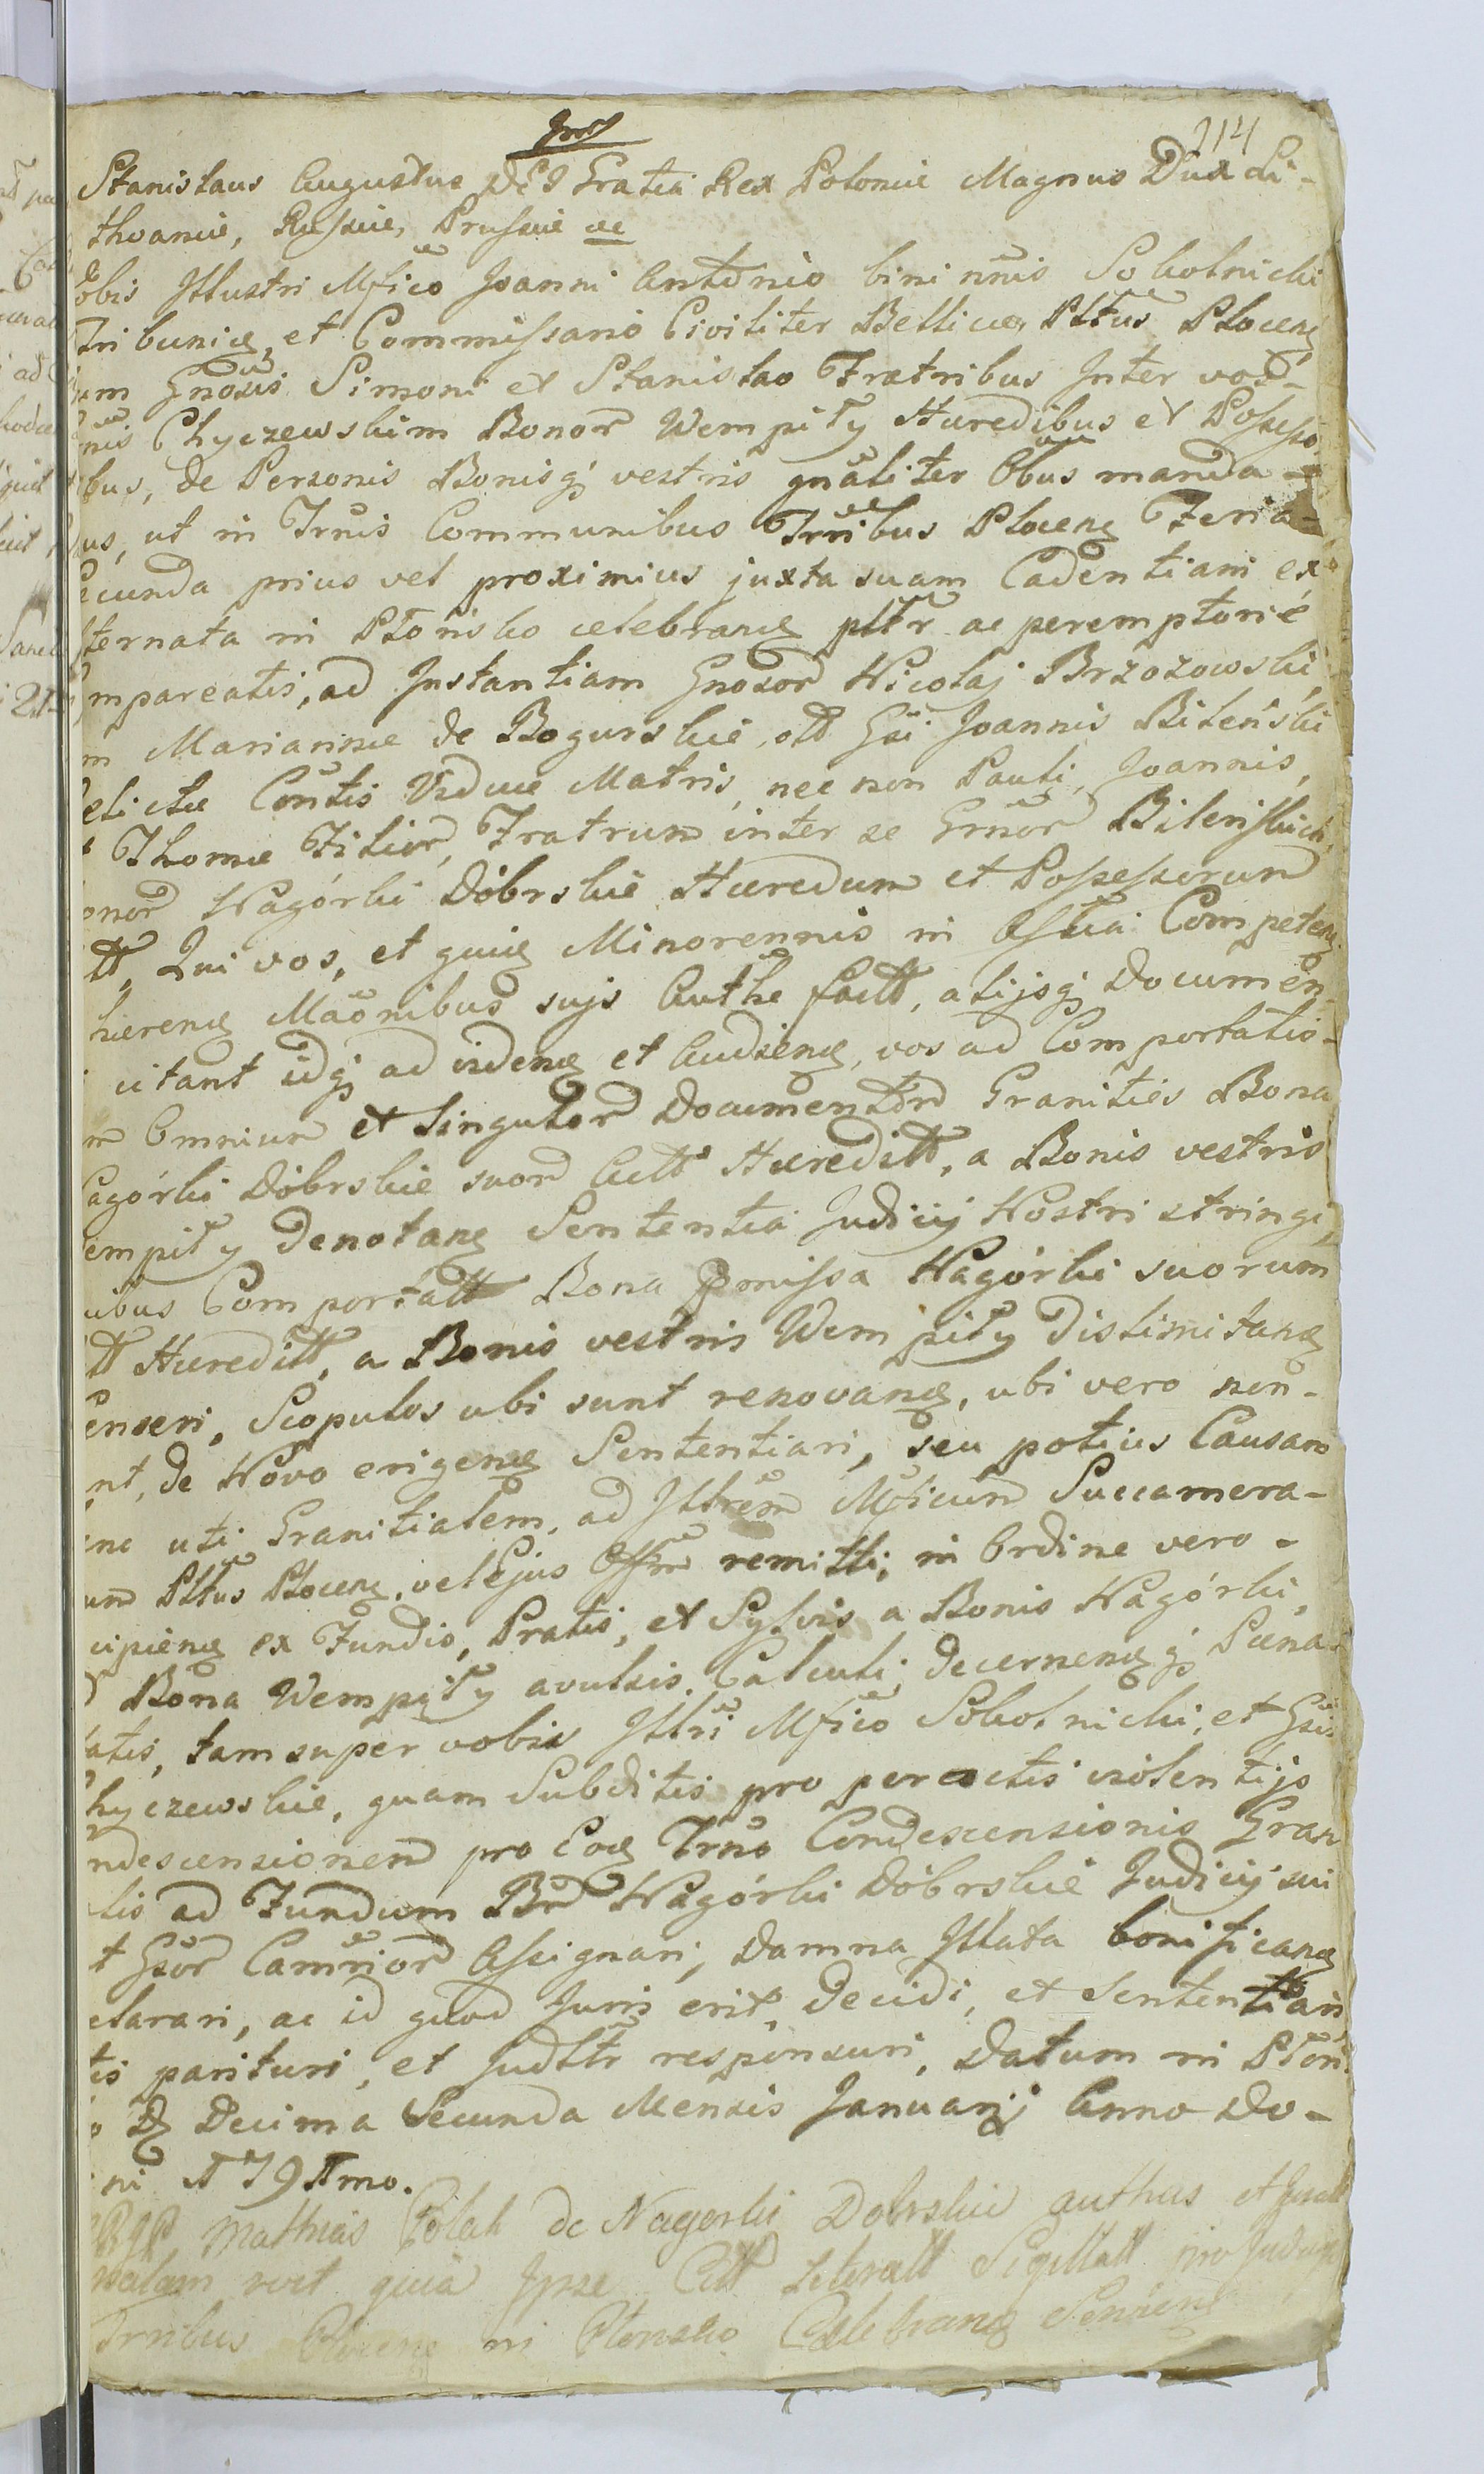 214
Stanislaus Augustus DEI Gratia Rex Poloniæ Magnus Dux Li-
thvaniæ, Russiæ, Prussiæ &c
Vobis Illustri Mfico Joanni Antonio bini nnis Sokolnicki
Tribunię, et Commissario Civiliter Bellicoę Pltus Plocenę
um Gnosis Simoni et Stanislao Fratribus Inter vos-
nis Chyczewskim Bonor Wempiły Hæredibus et Possesso
ibus, de Personis Bonisq vestris gnaliter Obus manda-
us, ut in Trnis Communibus Trribus Plocenę Feria-
ecunda prius vel proximius juxta suam Cadentiam ex
lternata in Płońsko celebranę pltr ac peremptorie
mpareatis, ad Instantiam Gnosor Nicolaj Brzozowski,
m Mariannæ de Bogurskie, olt Gsi Joannis Bileński
elictæ Contis Viduæ Matris, nec non Pauli, Joannis,
t Thomæ Filior, Fratrum inter se Grnor Bilenskich,
onor Nagórki Dobrskie Hæredum et Possessorum
tt, Qui vos, et quię Minorennis in Asstia Competenę
hærenę Maonibus sujs Authe factt, alijsq Documen
citant idq ad videnę et Audienę, vos ad Comportatio-
m Omnium et Singulor Documentor Granities Bona
agórki Dobrskie suor Actt Hæreditt, a Bonis vestris
empiły Denotanę Sententia Judicij Nostri stringi,
uibus Comportatt Bona pmissa Nagórki suorum
tt Hæreditt, a Bonis vestris Wempiły Dislimitanę
enseri, Scopulos ubi sunt renovanę, ubi vero non-
nt, de Novo erigenę Sententiari, seu potius Causam
nc uti Granitialem, ad Illrem Mficum Succamera-
um Pltus Plocenę, vel Ejus Offm remitti, in Ordine vero-
cipienę ex Fundis, Pratis, et Sylvis a Bonis Nagórki,
d Bona Wempiły avulsis, Calculi, decernenęq Pæna-
atis, tam super vobis Illri Mfico Sokolnicki, et Gsis
hyczewskie, quam Subditis pro peractis violentijs
ndescensionem pro Eoę Trno Condescensionis Gran
lis ad Fundum Br Nagórki Dobrskie Judicij sui
t Gsor Camrior Assignari, Damna Illata bonificanę
clarari, ac id quod Juris erit, Decidi, et Sententiari,
tis parituri, et Judttr responsuri, Datum in Płoń
o D Decima Secunda Mensis Januarij Anno Do-
ni 1791mo.
Mathias Polak de Nagorki Dobrskie authus et
rvet quia Ipse Citt Literatt Sigillatt pro Judicijs
Trribus Plocenę in Płonsko Celebranę